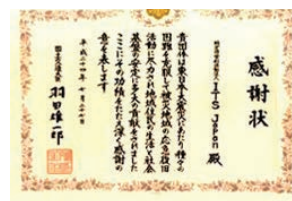 感謝状
特定非営利活動法人 ITS Japan 殿
貴団体は東日本大震災にあたり種々の
困難を克服して被災地域の応急復旧
活動に尽力され地域住民の生活と社会
基盤の安定に多大の貢献をされました
ここにその功績をたたえ深く感謝の
意を表します
平成二十四年
国土交通大臣
羽田雄一郎